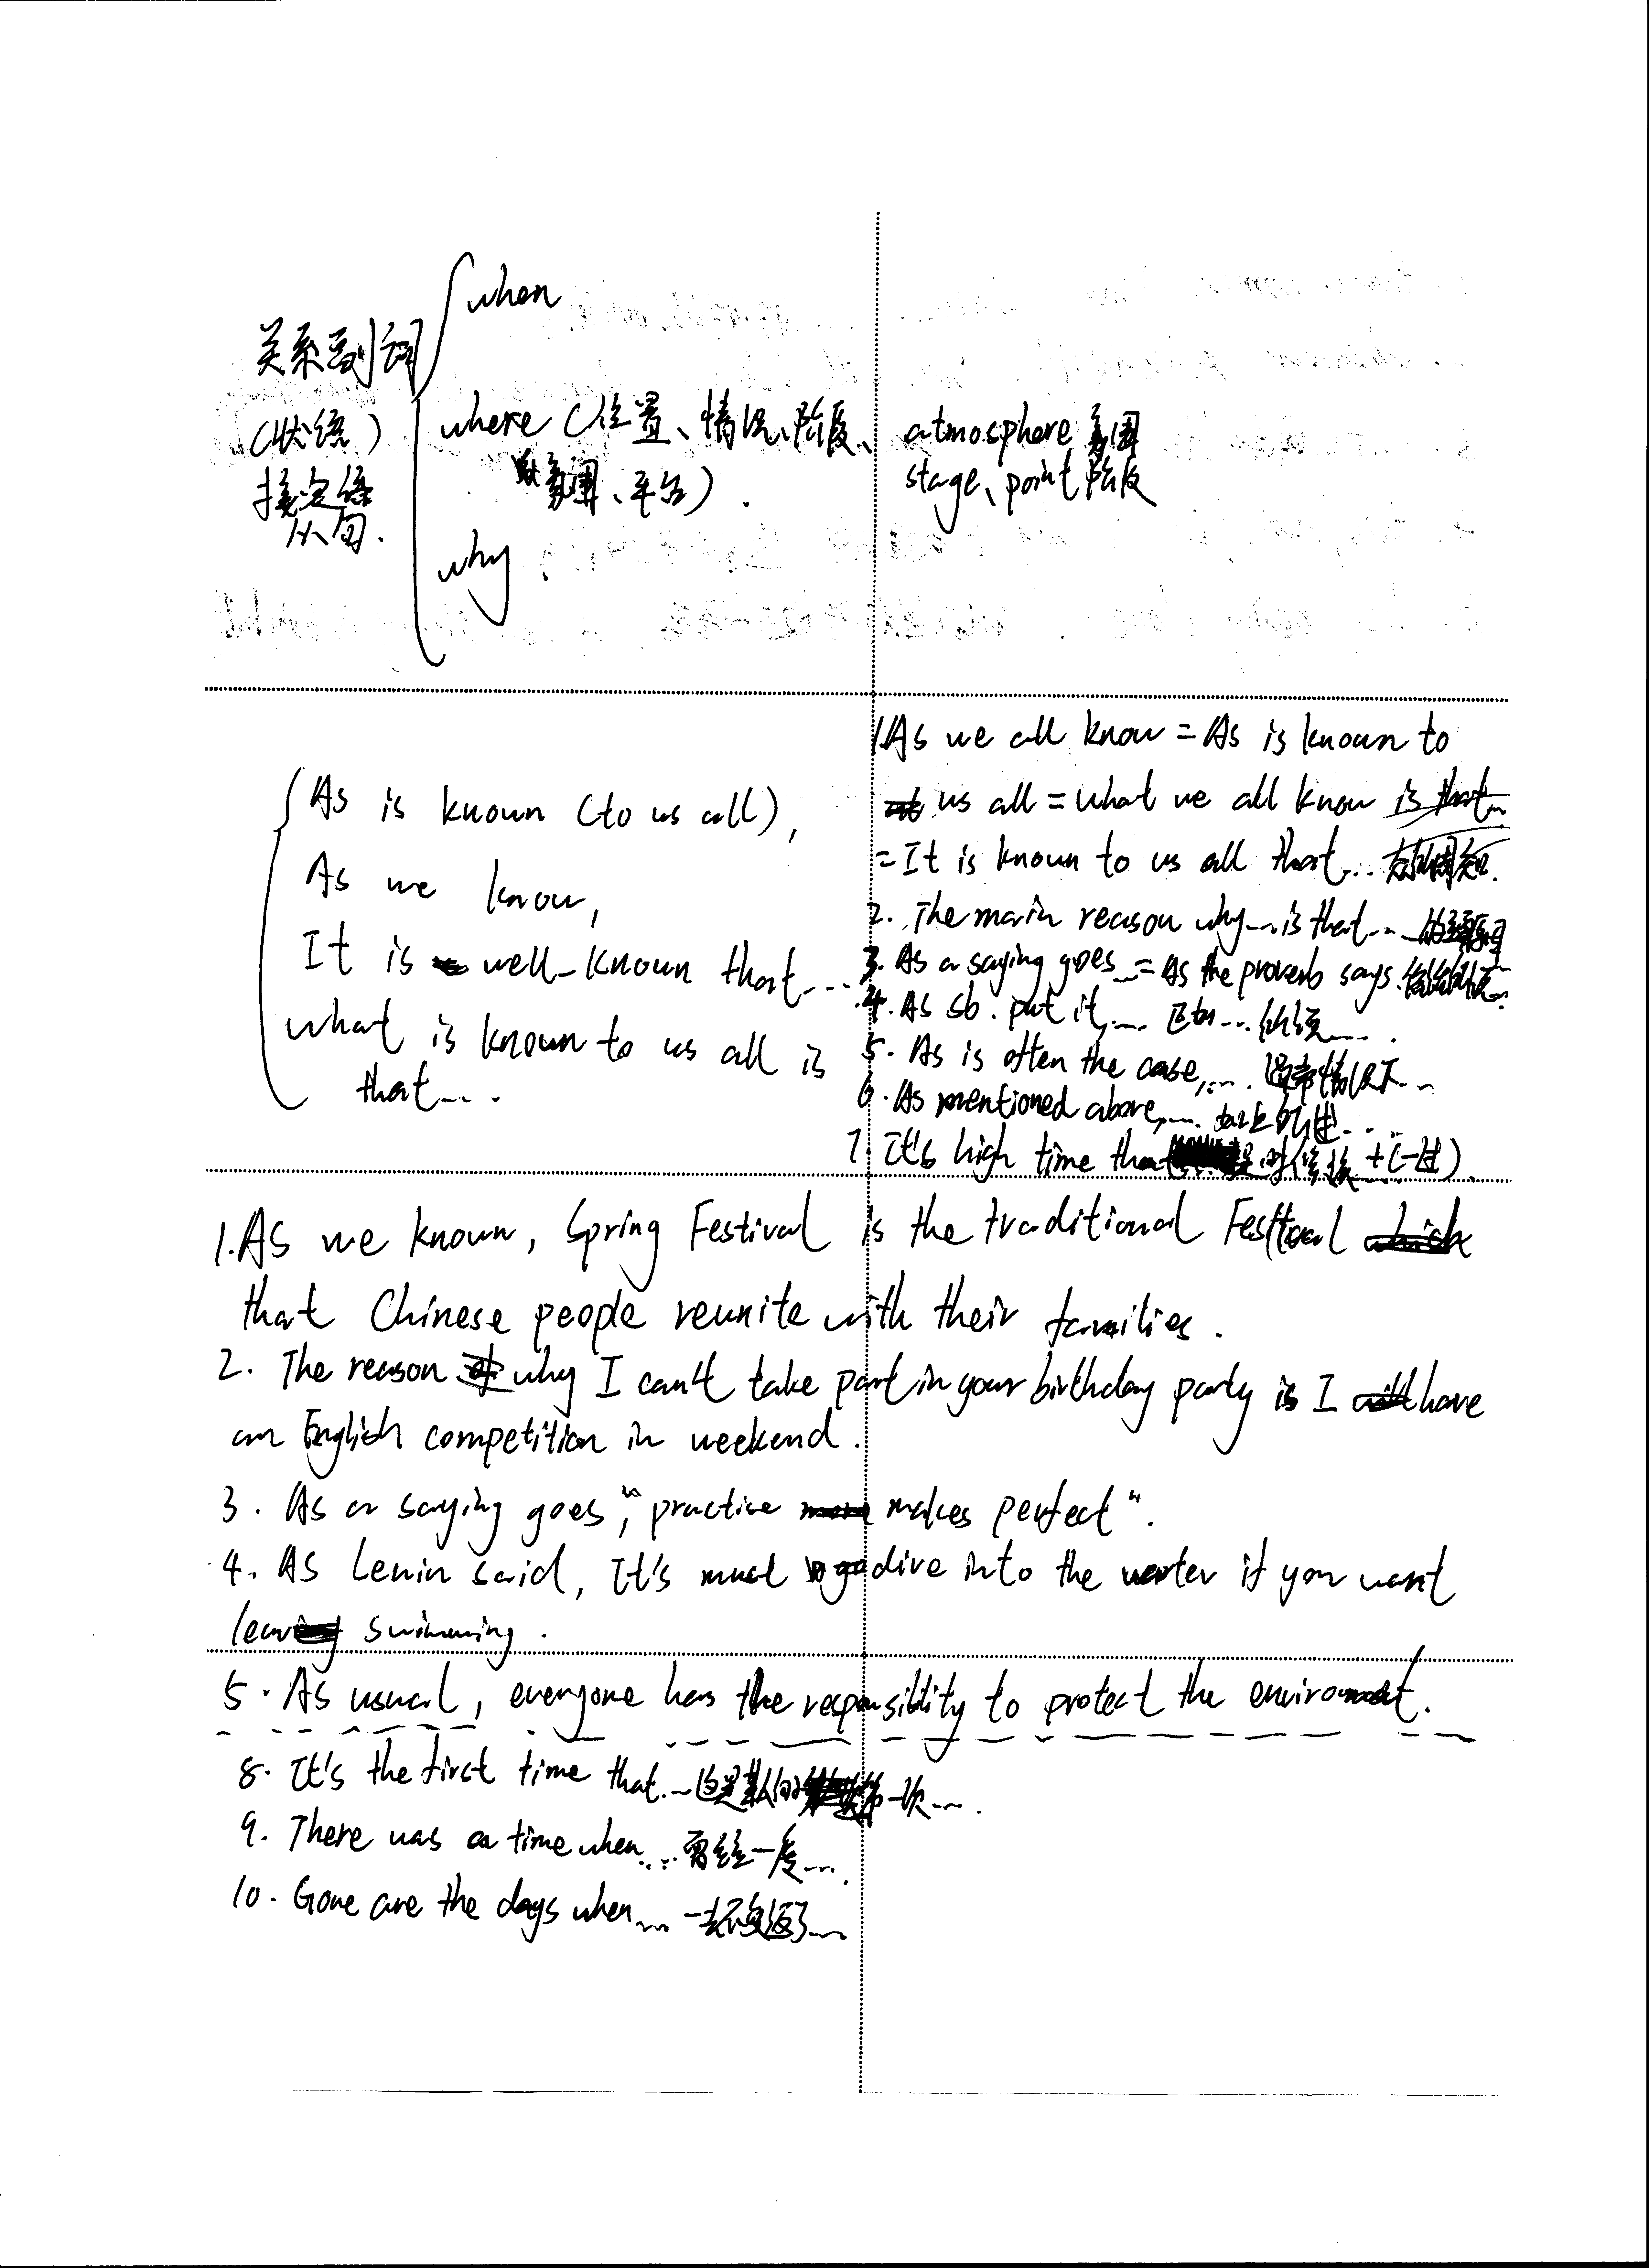 when
关系副词
(状语)
接定语
从句.
where (位置、情况、阶段、
氛围、平台).
why
atmosphere 氛围
stage、point 阶段
As is known (to us all),
As we know,
It is well-known that...
what is known to us all is
that...
1.As we all know = As is known to
us all = what we all know is that...
= It is known to us all that... 众所周知.
2. The main reason why...is that...
3. As a saying goes...= As the proverb says.俗话说
4. As sb. put it,... 正如...所说....
5. As is often the case,... 通常情况下...
6. As mentioned above,... 如上所述...
7. It's high time that
1.As we known, Spring Festival is the traditional Festival
that Chinese people reunite with their families.
2. The reason why I can't take part in your birthday party is I have
an English competition in weekend.
3. As a saying goes, "practise makes perfect".
4. As Lenin said, It's must dive into the water if you want
swimming.
5. As usual, everyone has the responsibility to protect the enviroment.
8. It's the first time that... 第一次....
9. There was a time when... 曾经一度....
10. Gone are the days when... 一去不复返了...